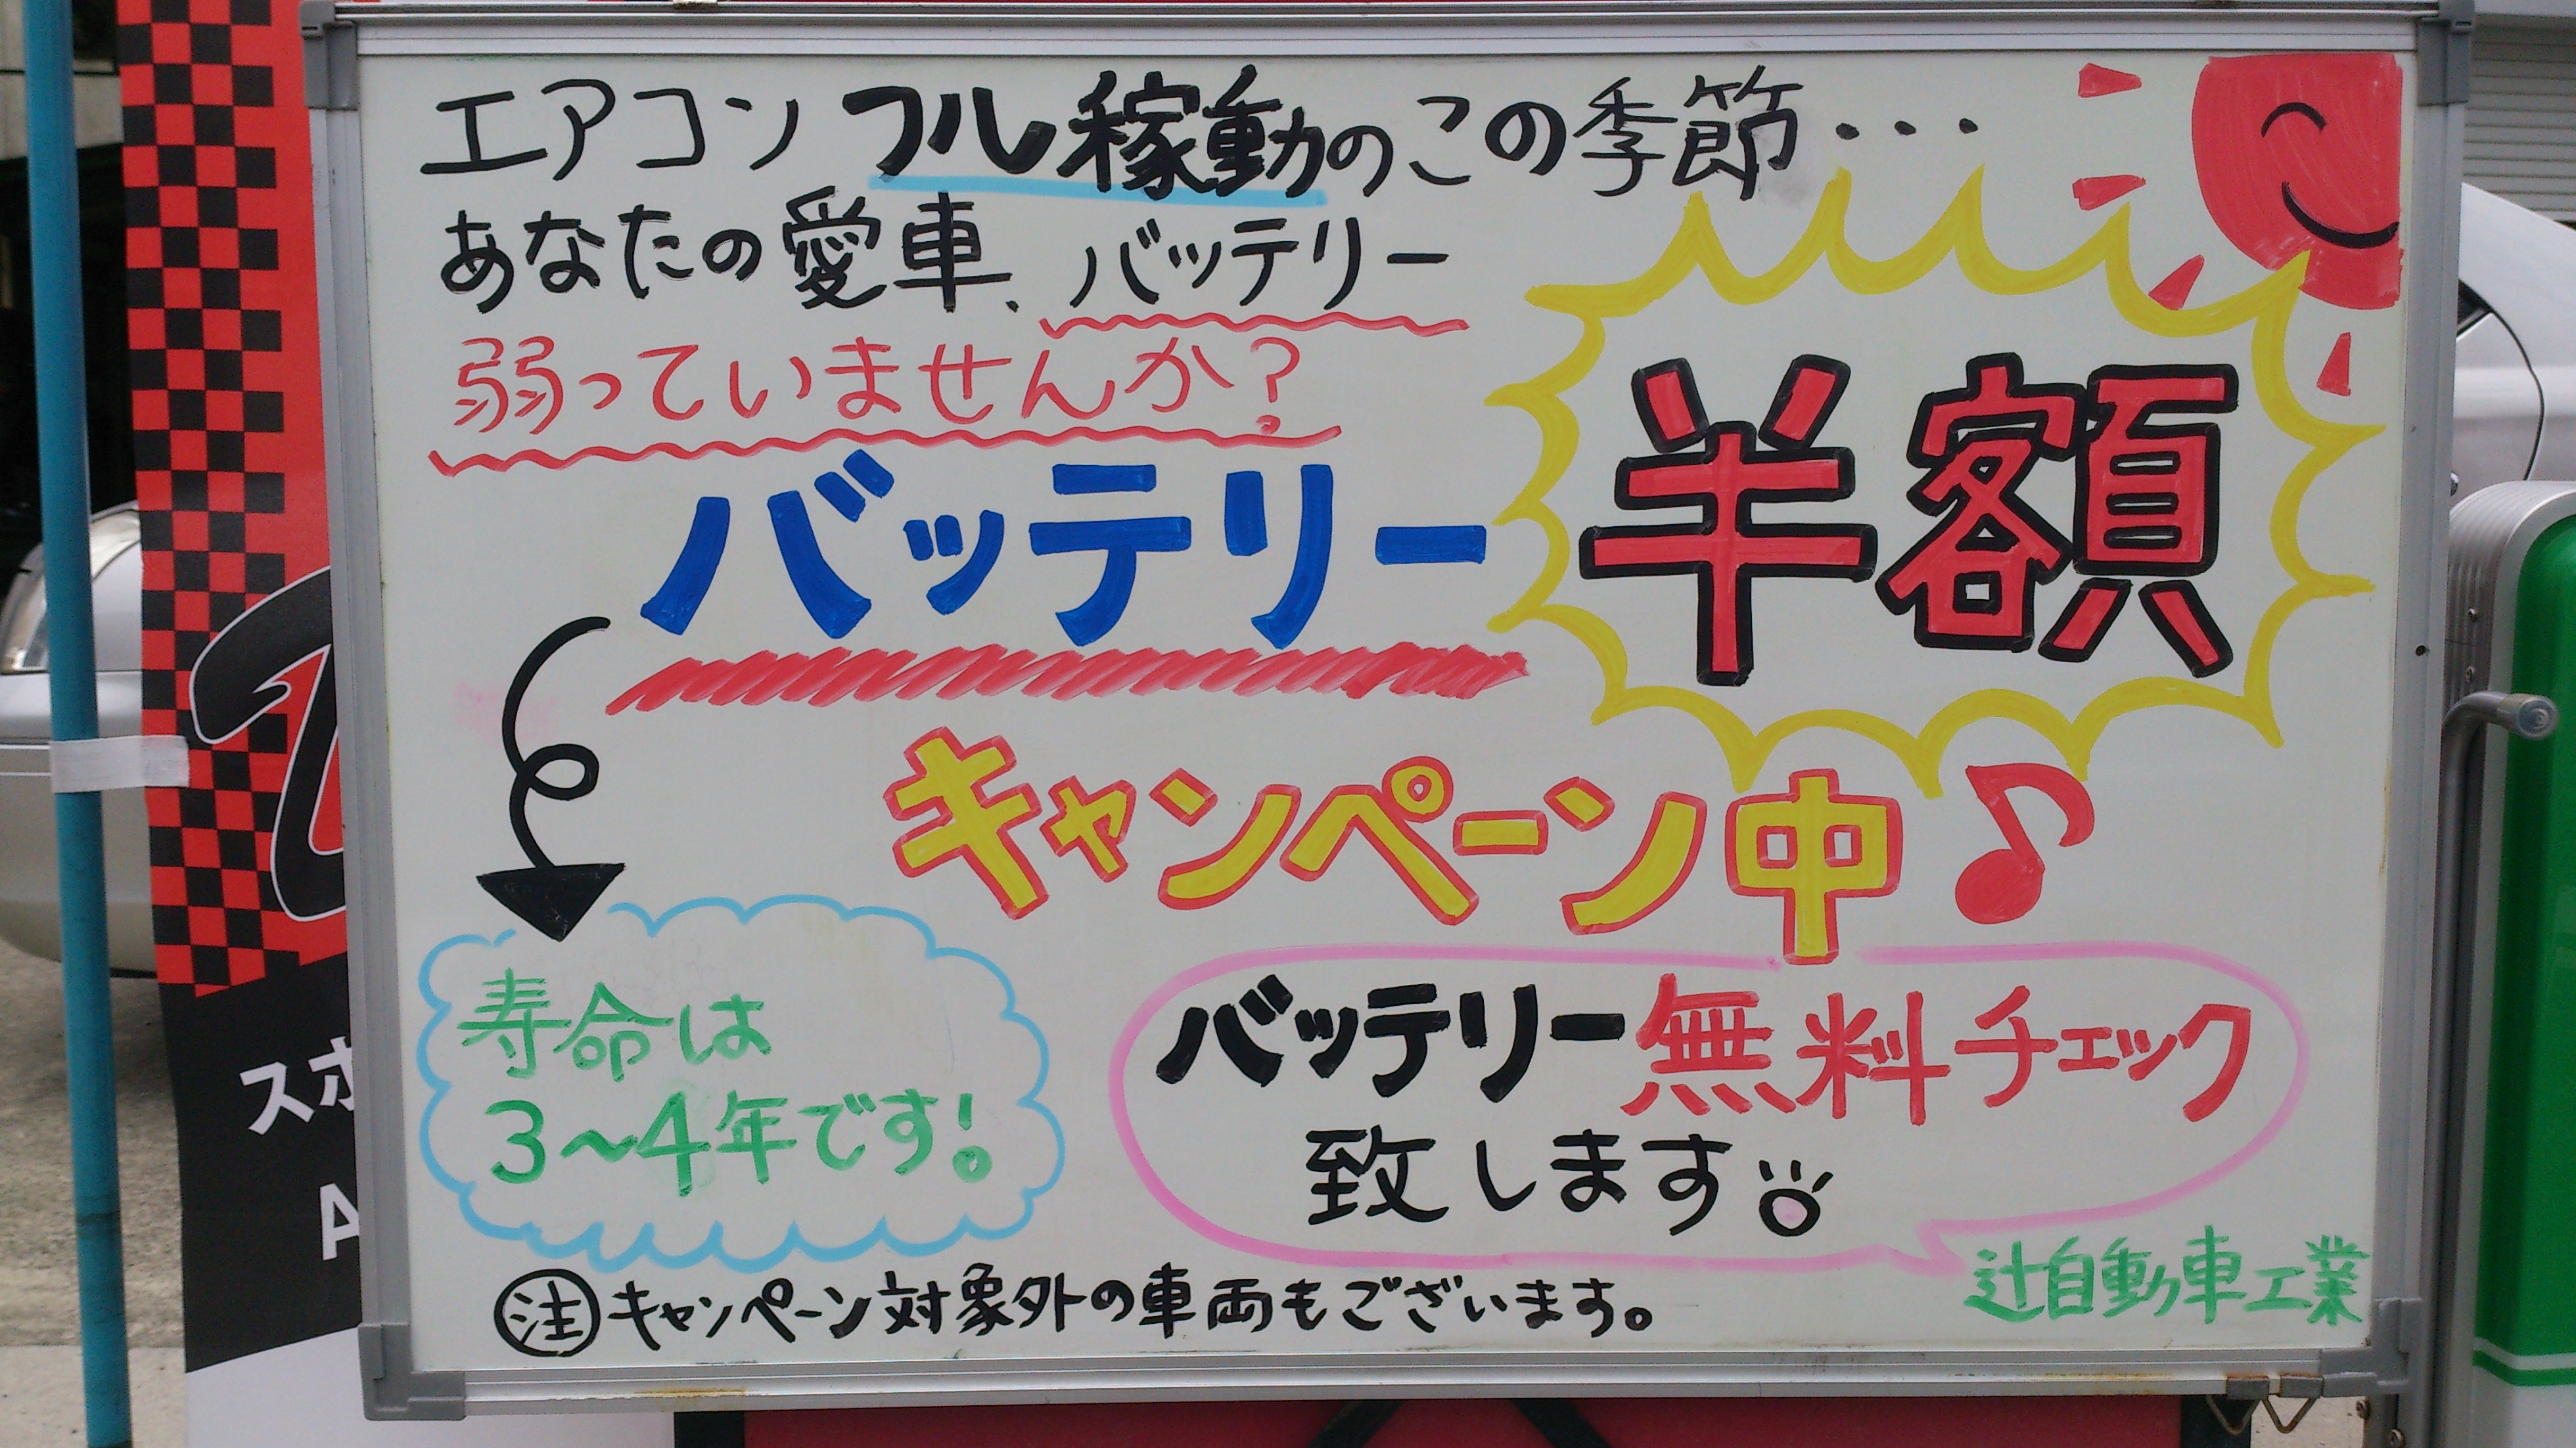 エアコンフル稼動のこの季節...
あなたの愛車、バッテリー
弱っていませんか?
バッテリー半額
キャンペーン中♪
寿命は
3〜4年です!
バッテリー無料チェック
致します
辻自動車工業
注キャンペーン対象外の車両もございます。
スポ
A